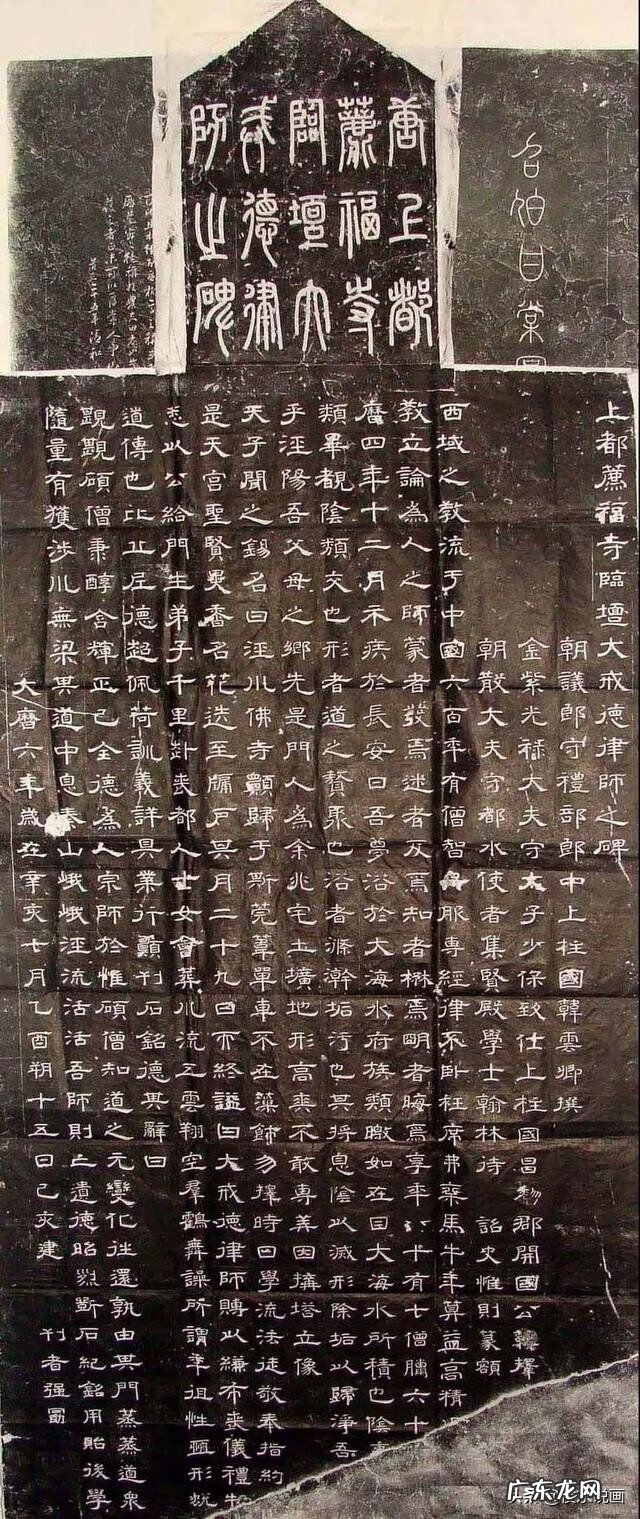 唐上都
薦福寺
臨壇大
戒德律
師之碑
召伯甘棠圖
上都薦福寺臨壇大戒德律師之碑
朝議郎守禮部郎中上柱國韓雲卿撰
金紫光祿大夫守太子少保致仕上柱國昌黎郡開國公韓擇
朝散大夫守都水使者集賢殿學士翰林待詔史惟則篆額
西域之教流于中國六百年有僧智舟服專經律不臥枉席弗乘馬牛年算益高精
教立論為人之師蒙者發焉迷者反焉知者楙焉明者晦焉享年八十有七僧臈六十
曆四年十二月示疾於長安曰吾夢浴於大海水府族類瞰如在目大海水所積也陰
類畢覩陰類交也形者道之贅聚也浴者滌澣垢污也其將息陰以滅形除垢以歸淨吾
乎涇陽吾父母之鄉先是門人為余兆宅土壙地形高爽不敢專美因搆塔立像
天子聞之錫名曰涇川佛寺顧歸于斯莞葦單車不在藻飾勿擇時日學流法徒敬奉指約
是天宮聖賢異香名花迭至牖戶其月二十九日而終謚曰大戒德律師賻以縑布喪儀禮物
悉以公給門生弟子千里赴喪都人士女會葬川流五雲翔空羣鶴舞譟所謂年徂性亟形蛻
道傳也比丘尼德超佩荷訓義詳其業行顧刊石銘德其辭曰
觀觀碩僧秉醇含輝正己全德為人宗師於惟碩僧知道之元變化往還孰由其門蒸蒸道衆
隨量有獲涉川無梁畀道中息泰山峨峨涇流活活吾師則亡遺德昭烈斲石紀銘用貽後學
大曆六年歲在辛亥七月乙酉朔十五日己亥建
刊者強勗
广东龙网